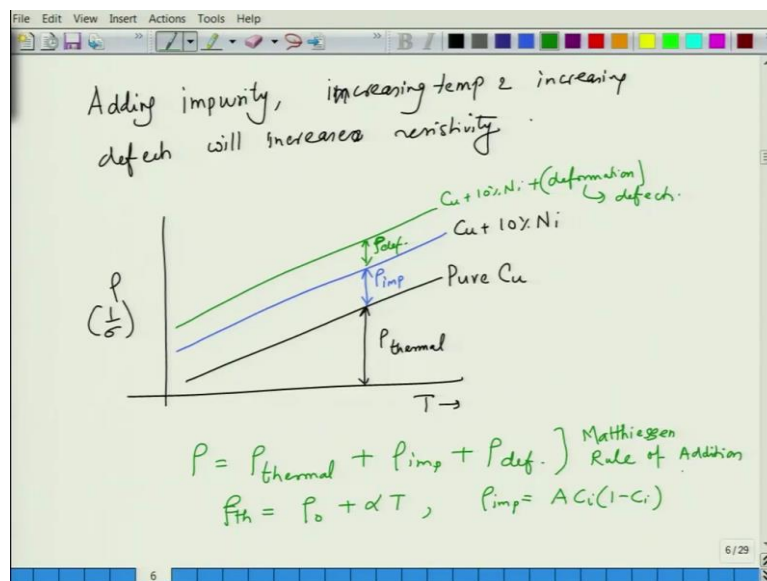 File Edit View Insert Actions Tools Help
Adding impurity, increasing temp & increasing
defech will increases resistivity.
Cu + 10% Ni + (deformation)
↳ defech.
Cu + 10% Ni
ρdef.
ρimp
Pure Cu
ρ
(1/σ)
ρthermal
T →
ρ = ρthermal + ρimp + ρdef. ) Matthiessen
Rule of Addition
ρth = ρ0 + αT, ρimp = A Ci(1-Ci)
6/29
6